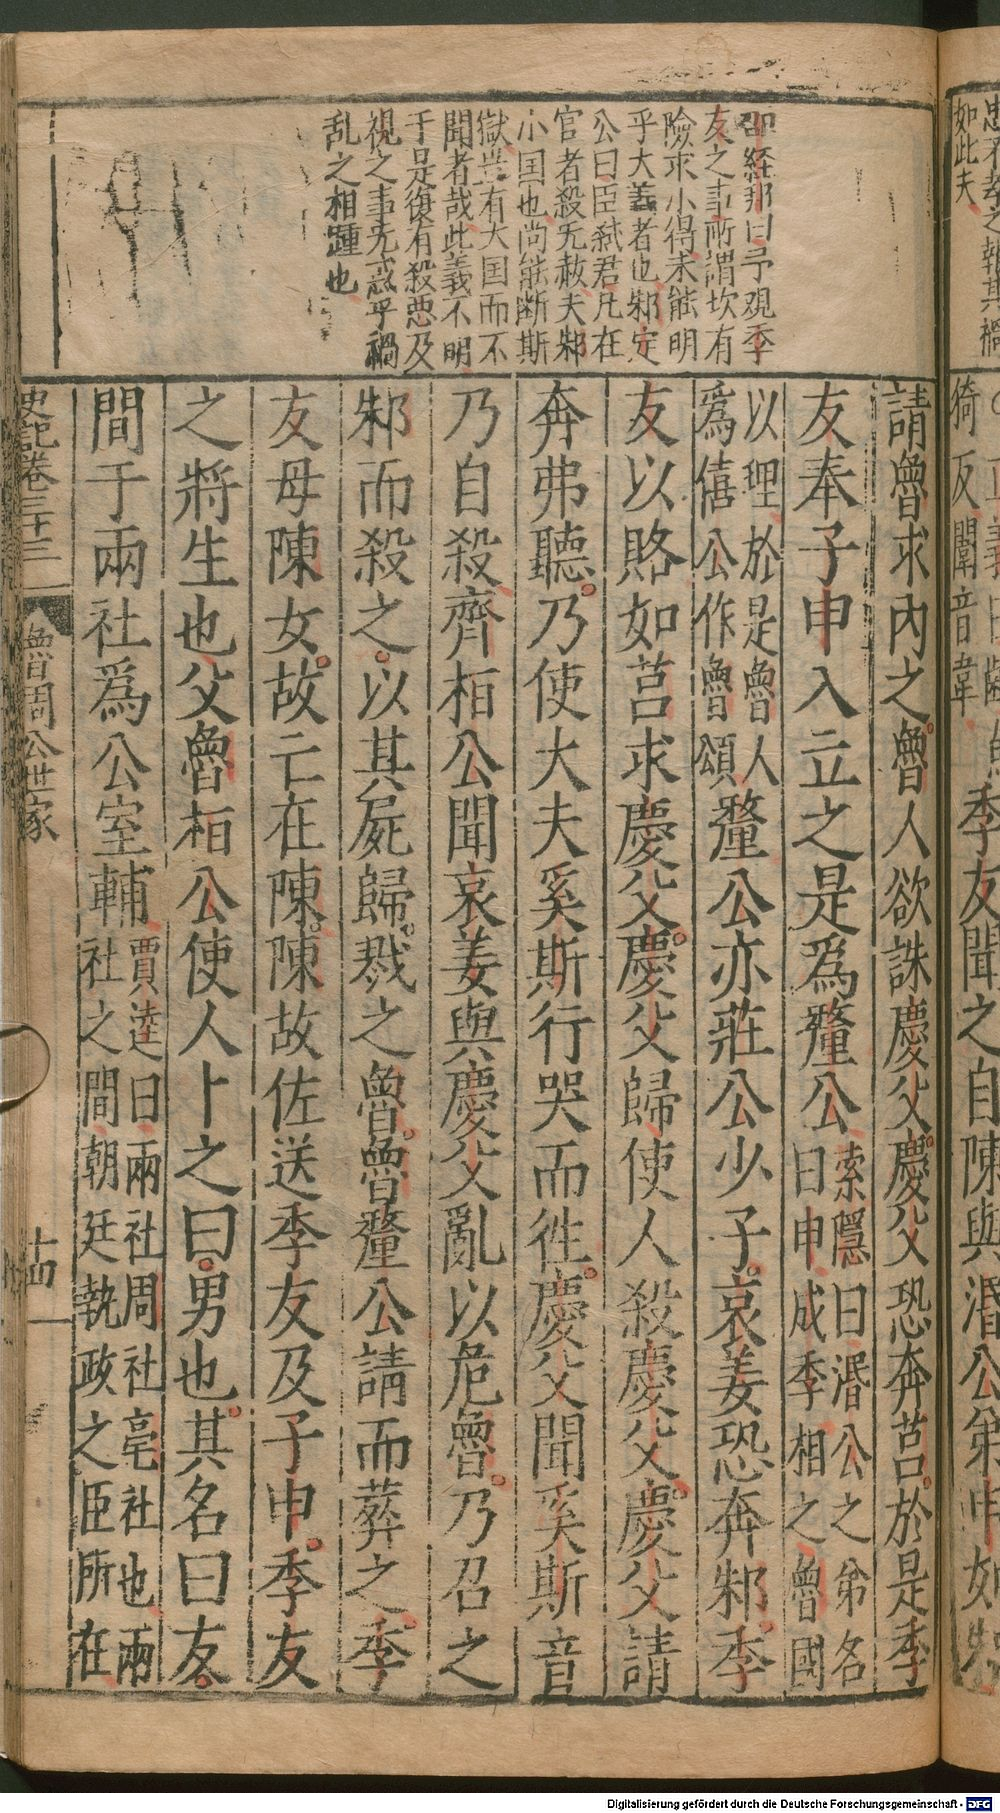 卲経邦曰予观季
友之事所謂坎有
險求小得未能明
乎大義者也邾定
公曰臣弑君凡在
官者殺无赦夫邾
小囯也尚能断斯
獄豈有大囯而不
聞者哉此義不明
于是復有殺惡及
視之事无惑乎禍
乱之相踵也
請魯求內之魯人欲誅慶父慶父恐奔莒於是季
友奉子申入立之是爲釐公
索隱曰湣公之弟名
曰申成季相之魯國
以理於是魯人
爲僖公作魯頌
釐公亦莊公少子哀姜恐奔邾季
友以賂如莒求慶父慶父歸使人殺慶父慶父請
奔弗聽乃使大夫奚斯行哭而徃慶父聞奚斯音
乃自殺齊桓公聞哀姜與慶父亂以危魯乃召之
邾而殺之以其屍歸戮之魯魯釐公請而葬之季
友母陳女故亡在陳陳故佐送季友及子申季友
之將生也父魯桓公使人卜之曰男也其名曰友
間于兩社爲公室輔
賈逵曰兩社周社亳社也兩
社之間朝廷執政之臣所在
史記卷三十三
魯周公世家
十四
如此夫
季友聞之自陳與湣公弟申如邾
Digitalisierung gefördert durch die Deutsche Forschungsgemeinschaft - DFG